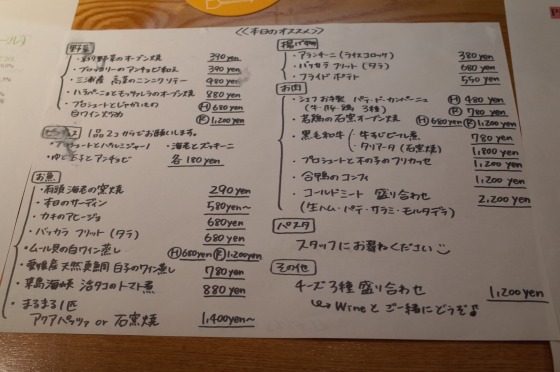 <<本日のオススメ>>
野菜
・彩り野菜のオーブン焼 390yen
・ブロッコリーのアンチョビ和え 390yen
・三浦産 高菜のニンニクソテー 480yen
・ハラペーニョとモッツァレラのオーブン焼 880yen
・プロシュートとじゃがいもの Ⓗ680yen
白ワイン火りめ Ⓕ1,200yen
ピンチョス 1品2コからでお願いします。
・プロシュートとパルミジャーノ ・海老とズッキーニ
・ゆで玉子とアンチョビ 各180yen
お魚
・有頭海老の窯焼 290yen
・本日のサーディン 580yen~
・カキのアヒージョ 680yen
・バッカラ フリット(タラ) 680yen
・ムール貝の白ワイン蒸し Ⓗ680yen Ⓕ1,200yen
・愛媛産天然真鯛白子のワイン蒸し 780yen
・来島海峡 活タコのトマト煮 880yen
・まるまる1匹
アクアパッツァ or 石窯焼 1,400yen~
揚げ物
・アランチーニ(ライスコロッケ) 380yen
・バッカラ フリット(タラ) 680yen
・フライドポテト 550yen
お肉
・シェフお手製 パテ・ド・カンパーニュ Ⓗ480yen
(牛・豚・鶏 3種) Ⓕ780yen
・若鶏の石窯オーブン焼 Ⓗ680yen Ⓕ1,200yen
・黒毛和牛 ・牛すじビール煮 780yen
・タリアータ(石窯焼) 1,800yen
・プロシュートと木の子のフリカッセ 1,200yen
・合鴨のコンフィ 1,200yen
・コールドミート 盛り合わせ 2,200yen
(生ハム・パテ・サラミ・モルタデラ)
パスタ
スタッフにお尋ねください
その他
チーズ3種盛り合わせ 1,200yen
Wineとご一緒にどうぞ♪